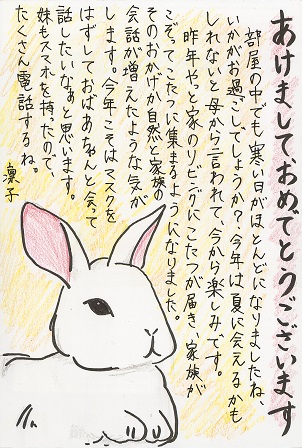 あけましておめでとうございます
部屋の中でも寒い日がほとんどになりましたね、
いかがお過ごしでしょうか？今年は夏に会えるかも
しれないと母から言われて、今から楽しみです。
昨年やっと家のリビングにこたつが届き、家族が
こぞってこたつに集まるようになりました。
そのおかげか自然と家族の
会話が増えたような気が
します。今年こそはマスクを
はずしておばあちゃんと会って
話したいなぁと思います。
妹もスマホを持ったので、
たくさん電話するね。
凛子